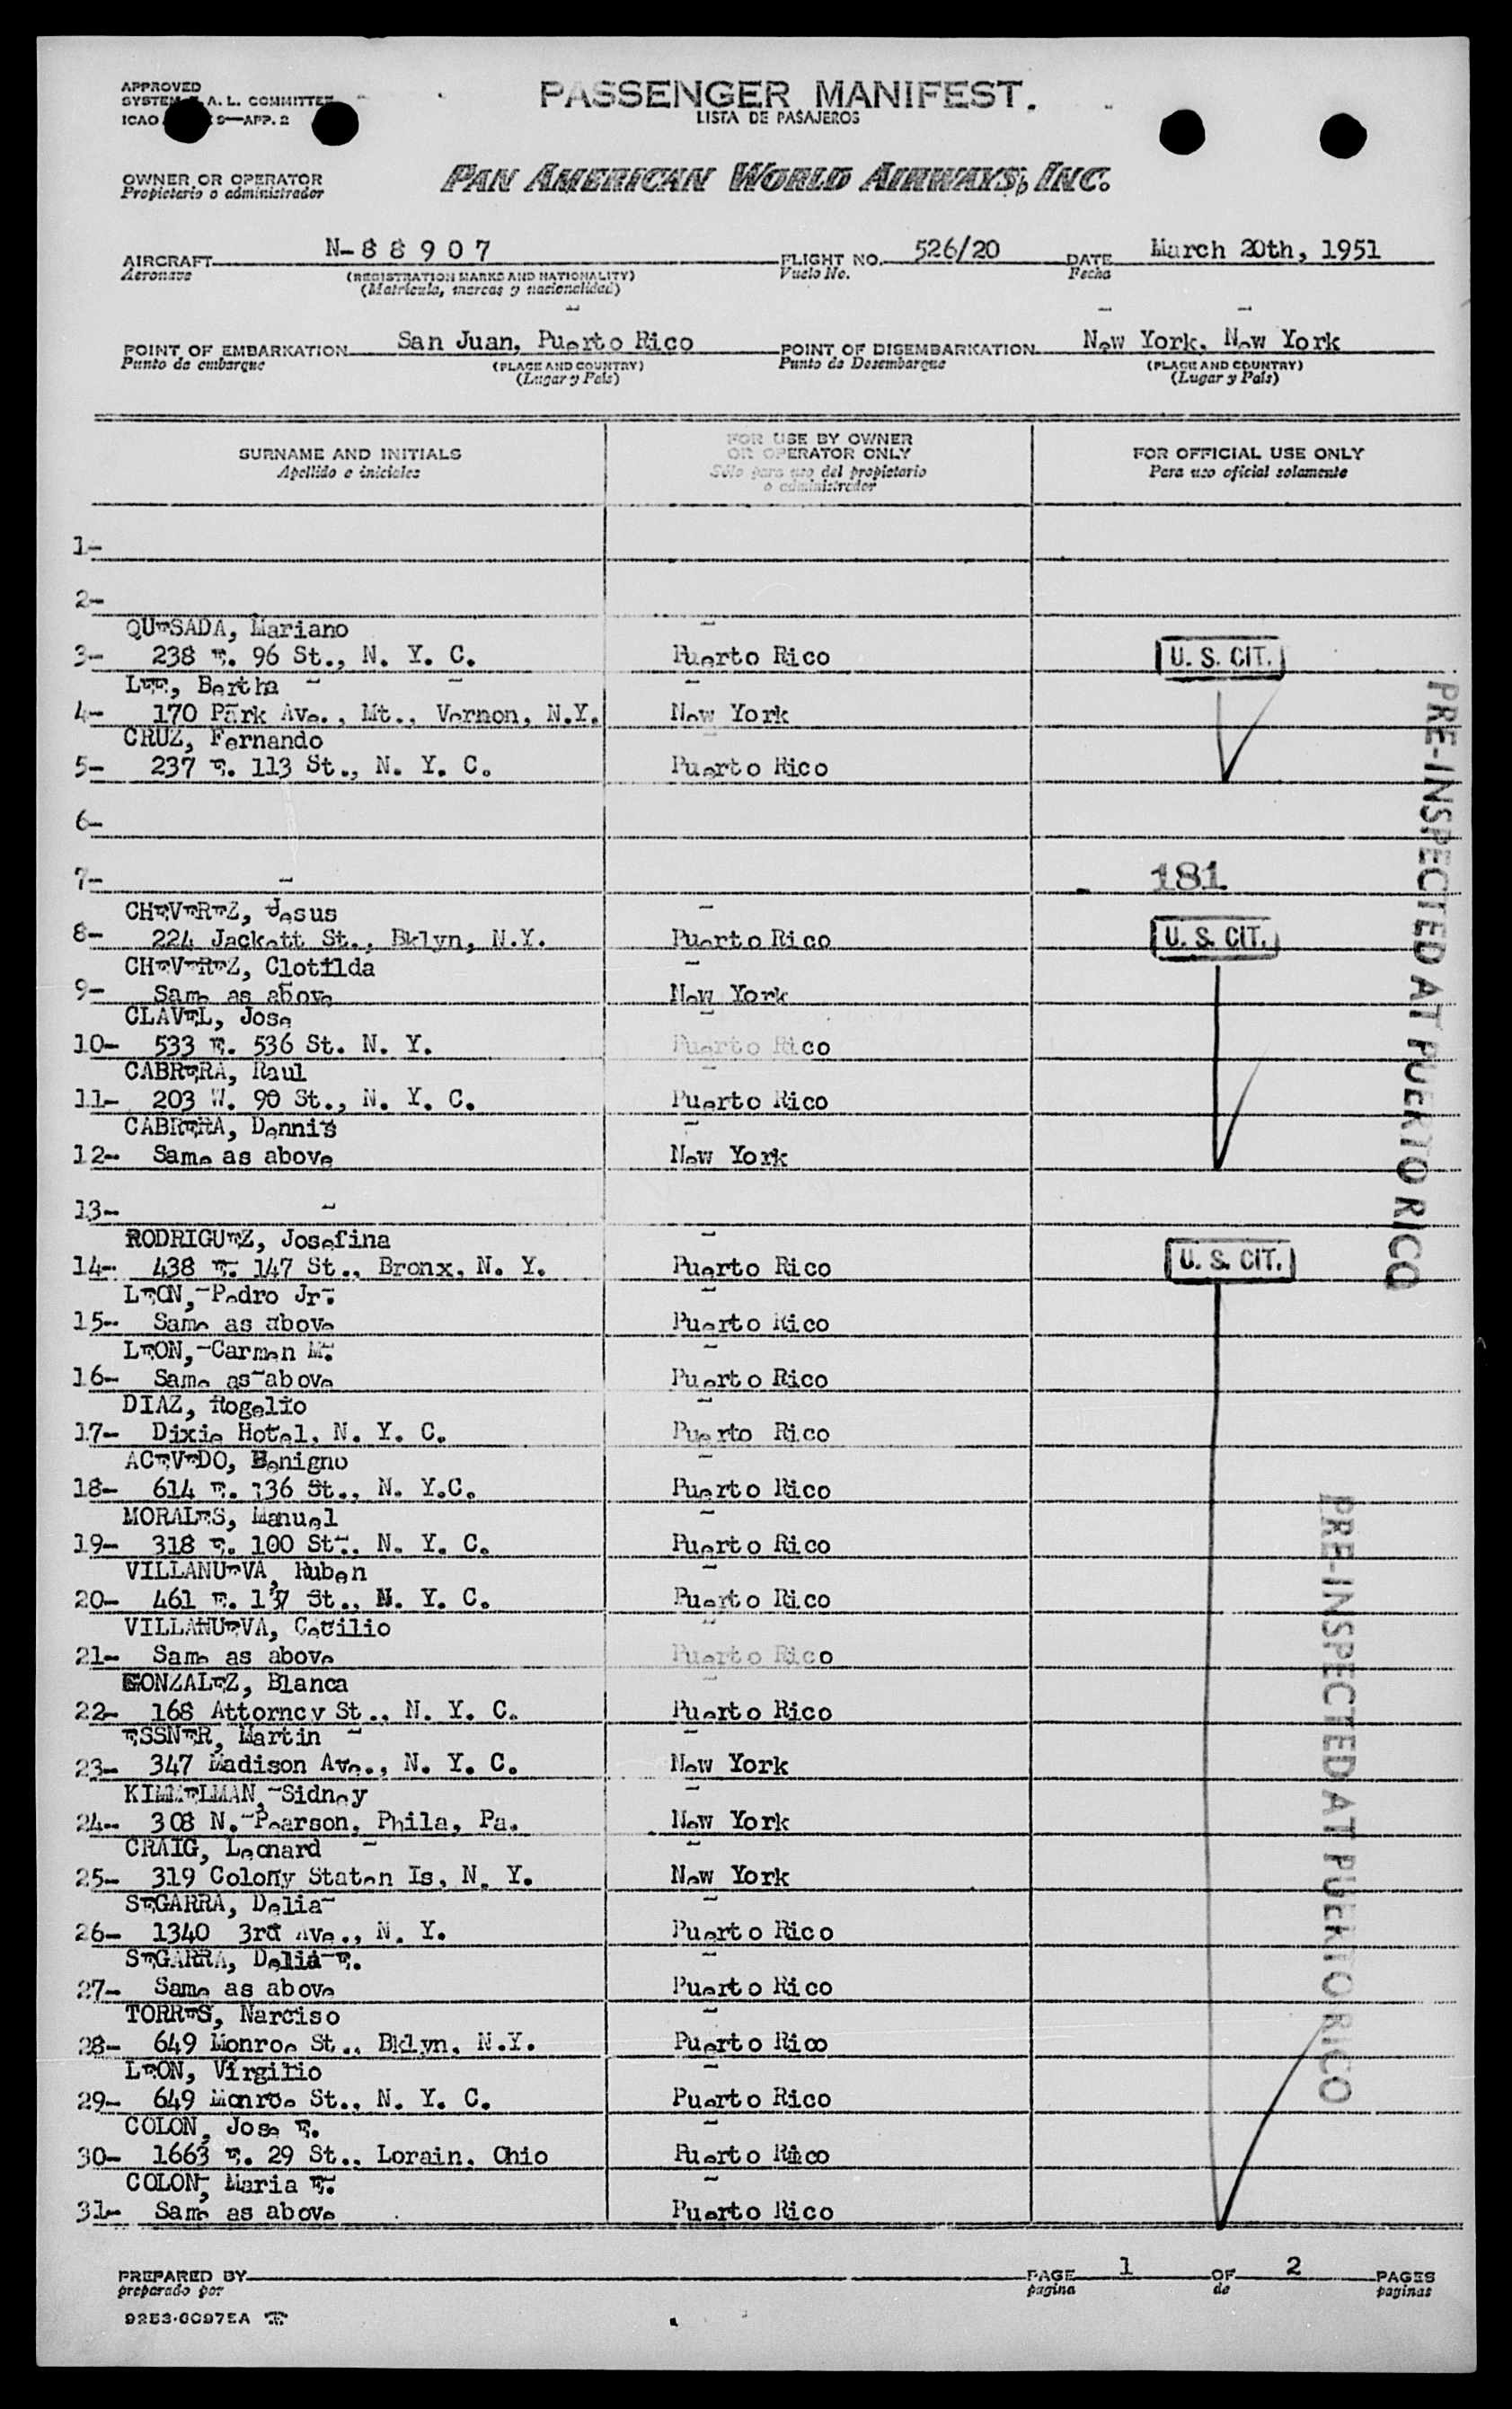 APPROVED
SYSTEM A. L. COMMITTEE
ICAO 9—APP. 2
PASSENGER MANIFEST.
LISTA DE PASAJEROS
OWNER OR OPERATOR
Propietario o administrador
PAN AMERICAN WORLD AIRWAYS, INC.
AIRCRAFT N-88907 FLIGHT NO. 526/20 DATE March 20th, 1951
Aeronave (REGISTRATION MARKS AND NATIONALITY) Vuelo No. Fecha
(Matrícula, marcas y nacionalidad)
POINT OF EMBARKATION San Juan, Puerto Rico POINT OF DISEMBARKATION New York, New York
Punto de embarque (PLACE AND COUNTRY) Punto de Desembarque (PLACE AND COUNTRY)
(Lugar y País) (Lugar y País)
SURNAME AND INITIALS FOR USE BY OWNER OR OPERATOR ONLY FOR OFFICIAL USE ONLY
Apellido e iniciales Sólo para uso del propietario o administrador Para uso oficial solamente
1-
2-
QUESADA, Mariano
3- 238 E. 96 St., N. Y. C. Puerto Rico U. S. CIT.
LEE, Bertha
4- 170 Park Ave., Mt., Vernon, N.Y. New York
CRUZ, Fernando
5- 237 E. 113 St., N. Y. C. Puerto Rico
6-
7- 181
CHEVEREZ, Jesus
8- 224 Jackett St., Bklyn, N.Y. Puerto Rico U. S. CIT.
CHEVEREZ, Clotilda
9- Same as above New York
CLAVEL, Jose
10- 533 E. 536 St. N. Y. Puerto Rico
CABRERA, Raul
11- 203 W. 90 St., N. Y. C. Puerto Rico
CABRERA, Dennis
12- Same as above New York
13-
RODRIGUEZ, Josefina
14- 438 E. 147 St., Bronx, N. Y. Puerto Rico U. S. CIT.
LEON, Pedro Jr.
15- Same as above Puerto Rico
LEON, Carmen M.
16- Same as above Puerto Rico
DIAZ, Rogelio
17- Dixie Hotel, N. Y. C. Puerto Rico
ACEVEDO, Benigno
18- 614 E. 136 St., N. Y.C. Puerto Rico
MORALES, Manuel
19- 318 E. 100 St., N. Y. C. Puerto Rico
VILLANUEVA, Ruben
20- 461 E. 137 St., N. Y. C. Puerto Rico
VILLANUEVA, Cecilio
21- Same as above Puerto Rico
GONZALEZ, Blanca
22- 168 Attorney St., N. Y. C. Puerto Rico
ESSNER, Martin
23- 347 Madison Ave., N. Y. C. New York
KIMMELMAN, Sidney
24- 308 N. Pearson, Phila, Pa. New York
CRAIG, Leonard
25- 319 Colony Staten Is, N. Y. New York
SEGARRA, Delia
26- 1340 3rd Ave., N. Y. Puerto Rico
SEGARRA, Delia E.
27- Same as above Puerto Rico
TORRES, Narciso
28- 649 Monroe St., Bklyn, N.Y. Puerto Rico
LEON, Virgilio
29- 649 Monroe St., N. Y. C. Puerto Rico
COLON, Jose E.
30- 1663 E. 29 St., Lorain, Ohio Puerto Rico
COLON, Maria E.
31- Same as above Puerto Rico
PRE-INSPECTED AT PUERTO RICO
PRE-INSPECTED AT PUERTO RICO
PREPARED BY PAGE 1 OF 2 PAGES
preparado por pagina de paginas